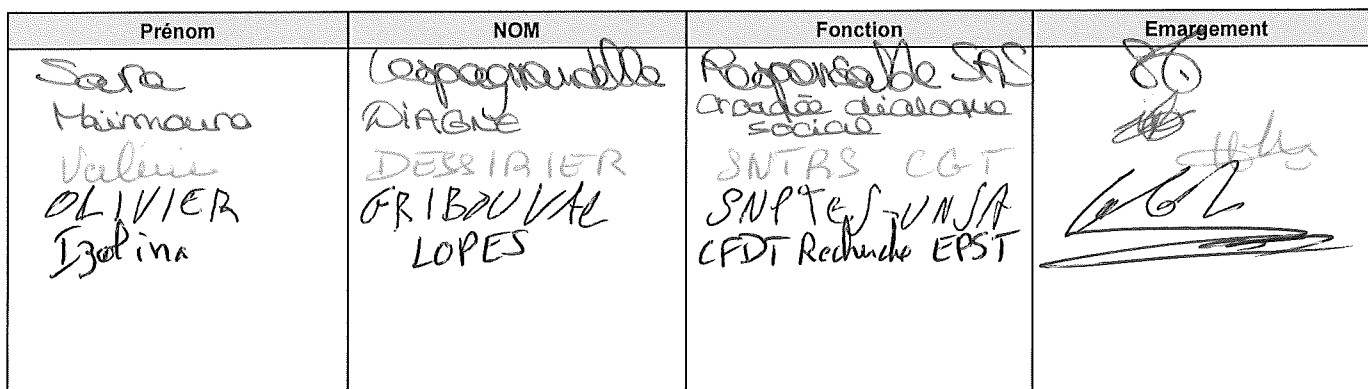 Prénom NOM Fonction Emargement
Sara Lespagnandelle Responsable SAS
Maimouna DIAGNE Chargée dialogue
social
Valérie DESSIRIER SNTRS CGT
OLIVIER GRIBOUVAL SNPTES-UNSA
Izolina LOPES CFDT Recherche EPST